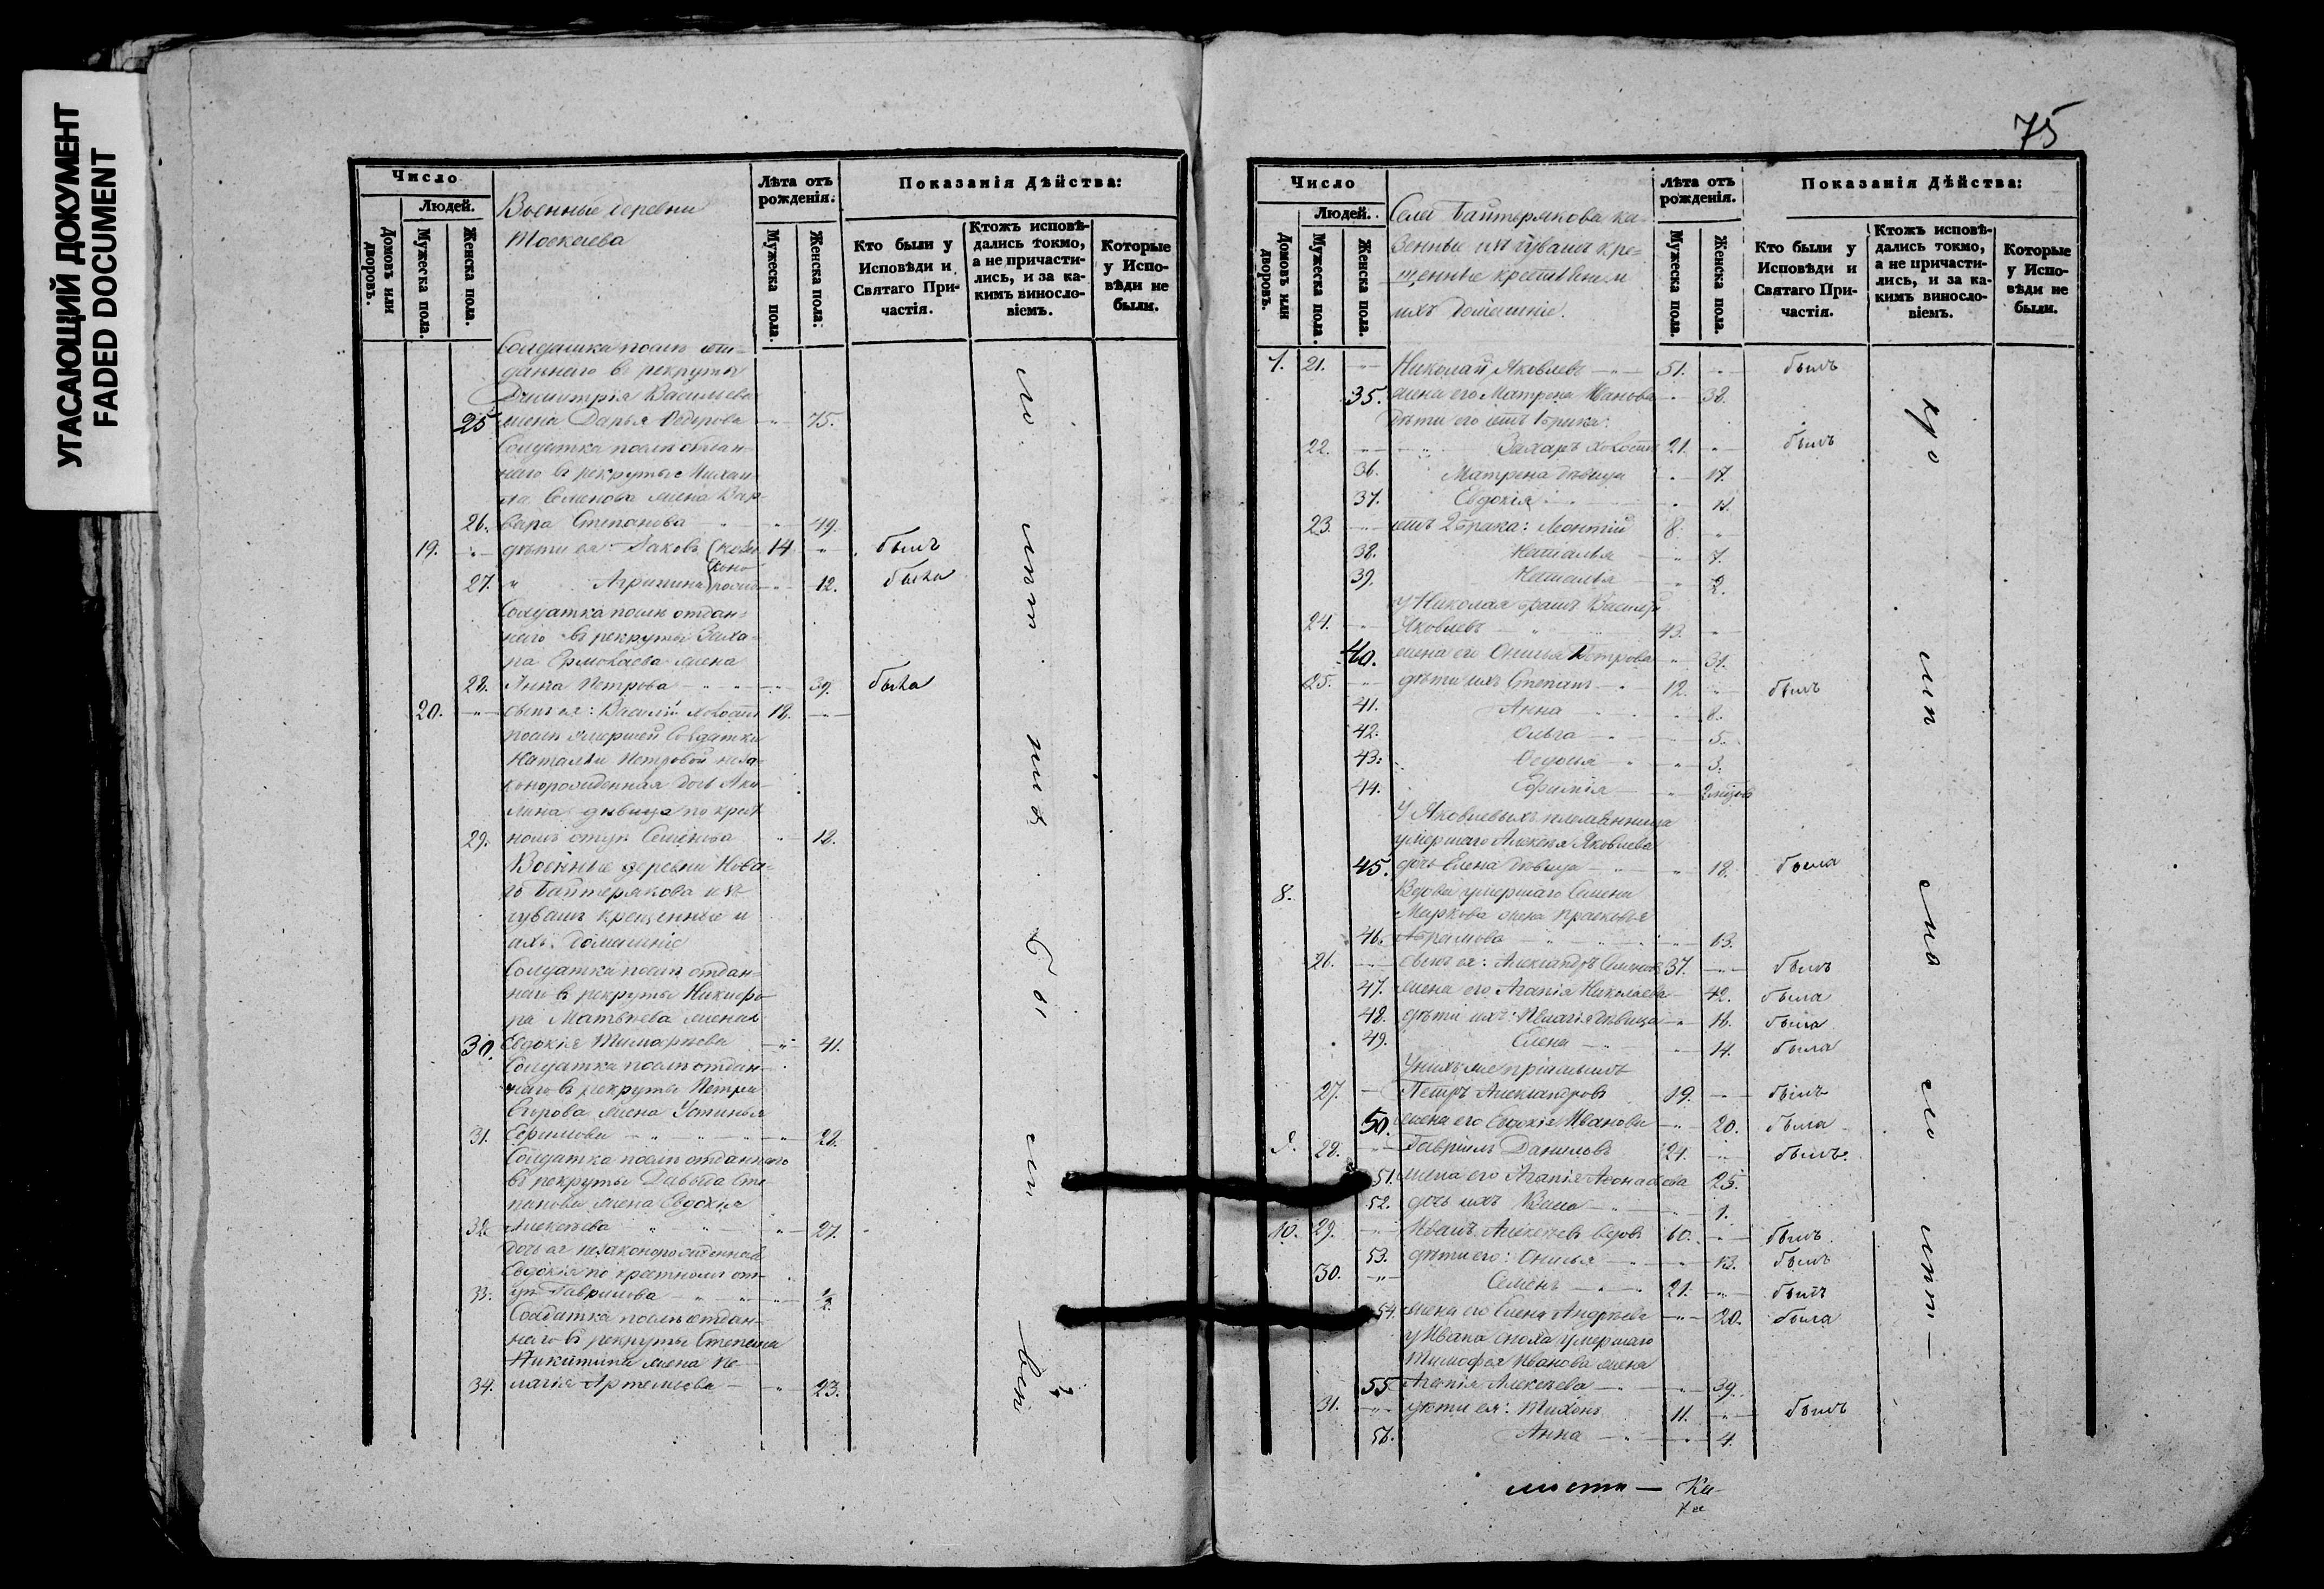 УГАСАЮЩИЙ ДОКУМЕНТ
FADED DOCUMENT
Число
Людей.
Домовъ или дворовъ.
Мужеска пола.
Женска пола.
Военные деревни
Москаева
Лѣта отъ рожденія.
Мужеска пола.
Женска пола.
Показанія Дѣйства:
Кто были у Исповѣди и Святаго Причастія.
Ктожъ исповѣдались токмо, а не причастились, и за какимъ винословіемъ.
Которые у Исповѣди не были.
Солдатка посли отданнаго в рекруты
Димитрія Васильева
25 жена Дарья Федорова 75.
Солдатка посли отданнаго в рекруты Михаила Семенова жена Вар-
26. вара Степанова 49.
19. дѣти ея: Іаковъ 14 былъ
27. Агрипина 12. была
Солдатка посли отданнаго въ рекруты Заха-
ра Ермолаева жена
28. Анна Петрова 39. была
20. сынъ ея: Василій холостъ 18.
посли умершей солдатки
Натальи Петровой неза-
конорожденная дочь Аки-
лина дѣвица по крест
29. номъ отцу Семенова 18.
Военные деревни Нова-
го Байтерякова изъ
чувашъ крещенные и
ихъ домашніе
Солдатка посли отдан-
наго в рекруты Никифо-
ра Матвѣева жена
30. Евдокія Тимофѣева 41.
Солдатка посли отдан-
наго в рекруты Петра
Егорова жена Устинья
31. Ефимова 28.
Солдатка посли отданнаго
въ рекруты Давыда Сте-
панова жена Евдокія
32. Алексѣева 27.
дочь ея незаконорожденная
Евдокія по крестному от-
33. цу Гаврилова 1/2.
Солдатка посли отдан-
наго в рекруты Степана
Никитина жена Пе-
34. лагія Артемьева 23.
75
Число
Людей.
Домовъ или дворовъ.
Мужеска пола.
Женска пола.
Села Байтерякова ка-
зенные изъ чувашъ кре-
щенные крестьяне и
ихъ домашніе.
Лѣта отъ рожденія.
Мужеска пола.
Женска пола.
Показанія Дѣйства:
Кто были у Исповѣди и Святаго Причастія.
Ктожъ исповѣдались токмо, а не причастились, и за какимъ винословіемъ.
Которые у Исповѣди не были.
7. 21. Николай Яковлевъ 51. былъ
35. жена его Матрена Иванова 38.
дѣти его отъ 1 брака:
22. Захаръ холостъ 21. былъ
36. Матрена дѣвица 17.
37. Евдокія 11.
23. отъ 2 брака: Леонтій 8.
38. Наталья 7.
39. Наталья 2.
У Николая братъ Василій
24. Яковлевъ 43.
40. жена его Онисья Петрова 31.
25. дѣти ихъ Степанъ 12. былъ
41. Анна 8.
42. Ольга 5.
43. Федосья 3.
44. Ефимія
У Яковлевыхъ племянница
умершаго Алексѣя Яковлева
45. дочь Елена дѣвица 18. была
8. Вдова умершаго Семена
Маркова жена Прасковья
46. Абрамова 63.
26. сынъ ея: Александръ Семеновъ 37. былъ
47. жена его Агапія Николаева 42. была
48. дѣти ихъ: Пелагія дѣвица 16. была
49. Елена 14. была
27. Петръ Александровъ 19. былъ
50. жена его Евдокія Иванова 20. была
9. 28. Гаврилъ Даниловъ 24. былъ.
51. жена его Агапія Афонасьева 25.
52. дочь ихъ 1.
10. 29. Иванъ Алексѣевъ вдовъ 60. былъ
53. дѣти его: Онисья 13. былъ
30. Семенъ 21. былъ
54. жена его Елена Андрѣева 20. была
у Ивана сноха умершаго
Тимофея Иванова жена
55. Агапія Алексѣева 39.
31. дѣти ея: Тихонъ 11. былъ
56. Анна 4.